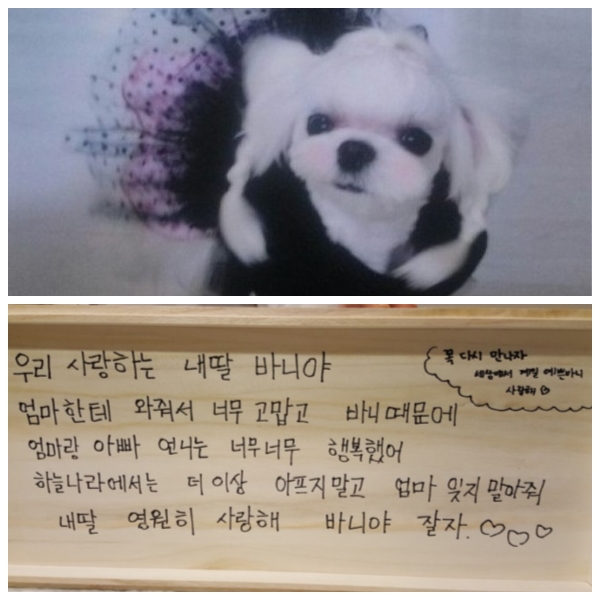 우리 사랑하는 내딸 바니야
엄마한테 와줘서 너무 고맙고 바니때문에
엄마랑 아빠 언니는 너무너무 행복했어
하늘나라에서는 더이상 아프지말고 엄마 잊지 말아줘
내딸 영원히 사랑해 바니야 잘자.
꼭 다시 만나자
세상에서 제일 예쁜바니
사랑해